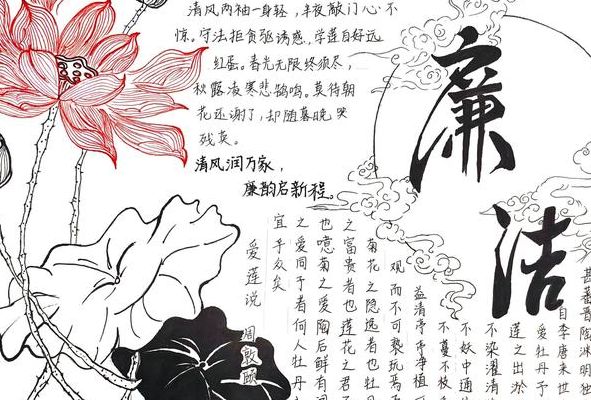 清风两袖一身轻，半夜敲门心不
惊。守法拒贪驱诱惑，学莲自好远
红蛋。春光无限终须尽，
秋露凌寒悲鹊鸣。莫待朝
花还谢了，却随暮晚哭
残英。
清风润万家，
廉韵启新程。
廉洁
甚蕃晋陶渊明独
自李唐来世
爱牡丹予
莲之出淤
不染濯清
不妖中通
不蔓不枝
益清亭亭净植
观而不可亵玩焉
菊花之隐逸者也牡
之富贵者也莲花之君
也噫菊之爱陶后鲜有
之爱同予者何人牡丹
宜乎众矣
爱莲说
周敦颐